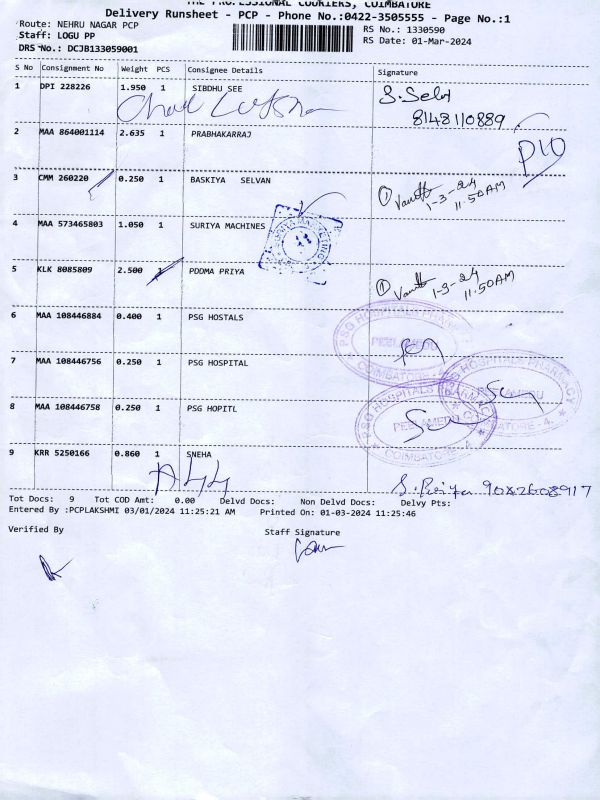 THE PROFESSIONAL COURIERS, COIMBATORE
Delivery Runsheet - PCP - Phone No.:0422-3505555 - Page No.:1
Route: NEHRU NAGAR PCP
RS No.: 1330590
Staff: LOGU PP
RS Date: 01-Mar-2024
DRS No.: DCJB133059001
S No Consignment No Weight PCS Consignee Details Signature
1 DPI 228226 1.950 1 SIBDHU SEE
8148110889
2 MAA 864001114 2.635 1 PRABHAKARRAJ
3 CMM 260220 0.250 1 BASKIYA SELVAN
1-3-24
11.50AM
4 MAA 573465803 1.050 1 SURIYA MACHINES
5 KLK 8085809 2.500 1 PDDMA PRIYA
1-3-24
11.50AM
6 MAA 108446884 0.400 1 PSG HOSTALS
PSG HOSPITALS PHARMACY
PEELAMEDU
COIMBATORE - 4.
7 MAA 108446756 0.250 1 PSG HOSPITAL
HOSPITALS PHARMACY
PEELAMEDU
COIMBATORE - 4.
8 MAA 108446758 0.250 1 PSG HOPITL
PSG HOSPITALS PHARMACY
PEELAMEDU
COIMBATORE - 4.
9 KRR 5250166 0.860 1 SNEHA
S. Priya 9042608917
Tot Docs: 9 Tot COD Amt: 0.00 Delvd Docs: Non Delvd Docs: Delvy Pts:
Entered By :PCPLAKSHMI 03/01/2024 11:25:21 AM Printed On: 01-03-2024 11:25:46
Verified By
Staff Signature